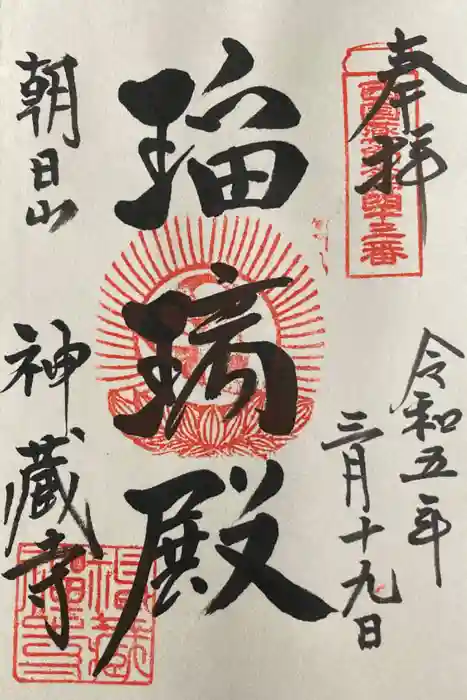 奉拝
西国薬師第四十三番
令和五年
三月十九日
瑠璃殿
朝日山
神蔵寺